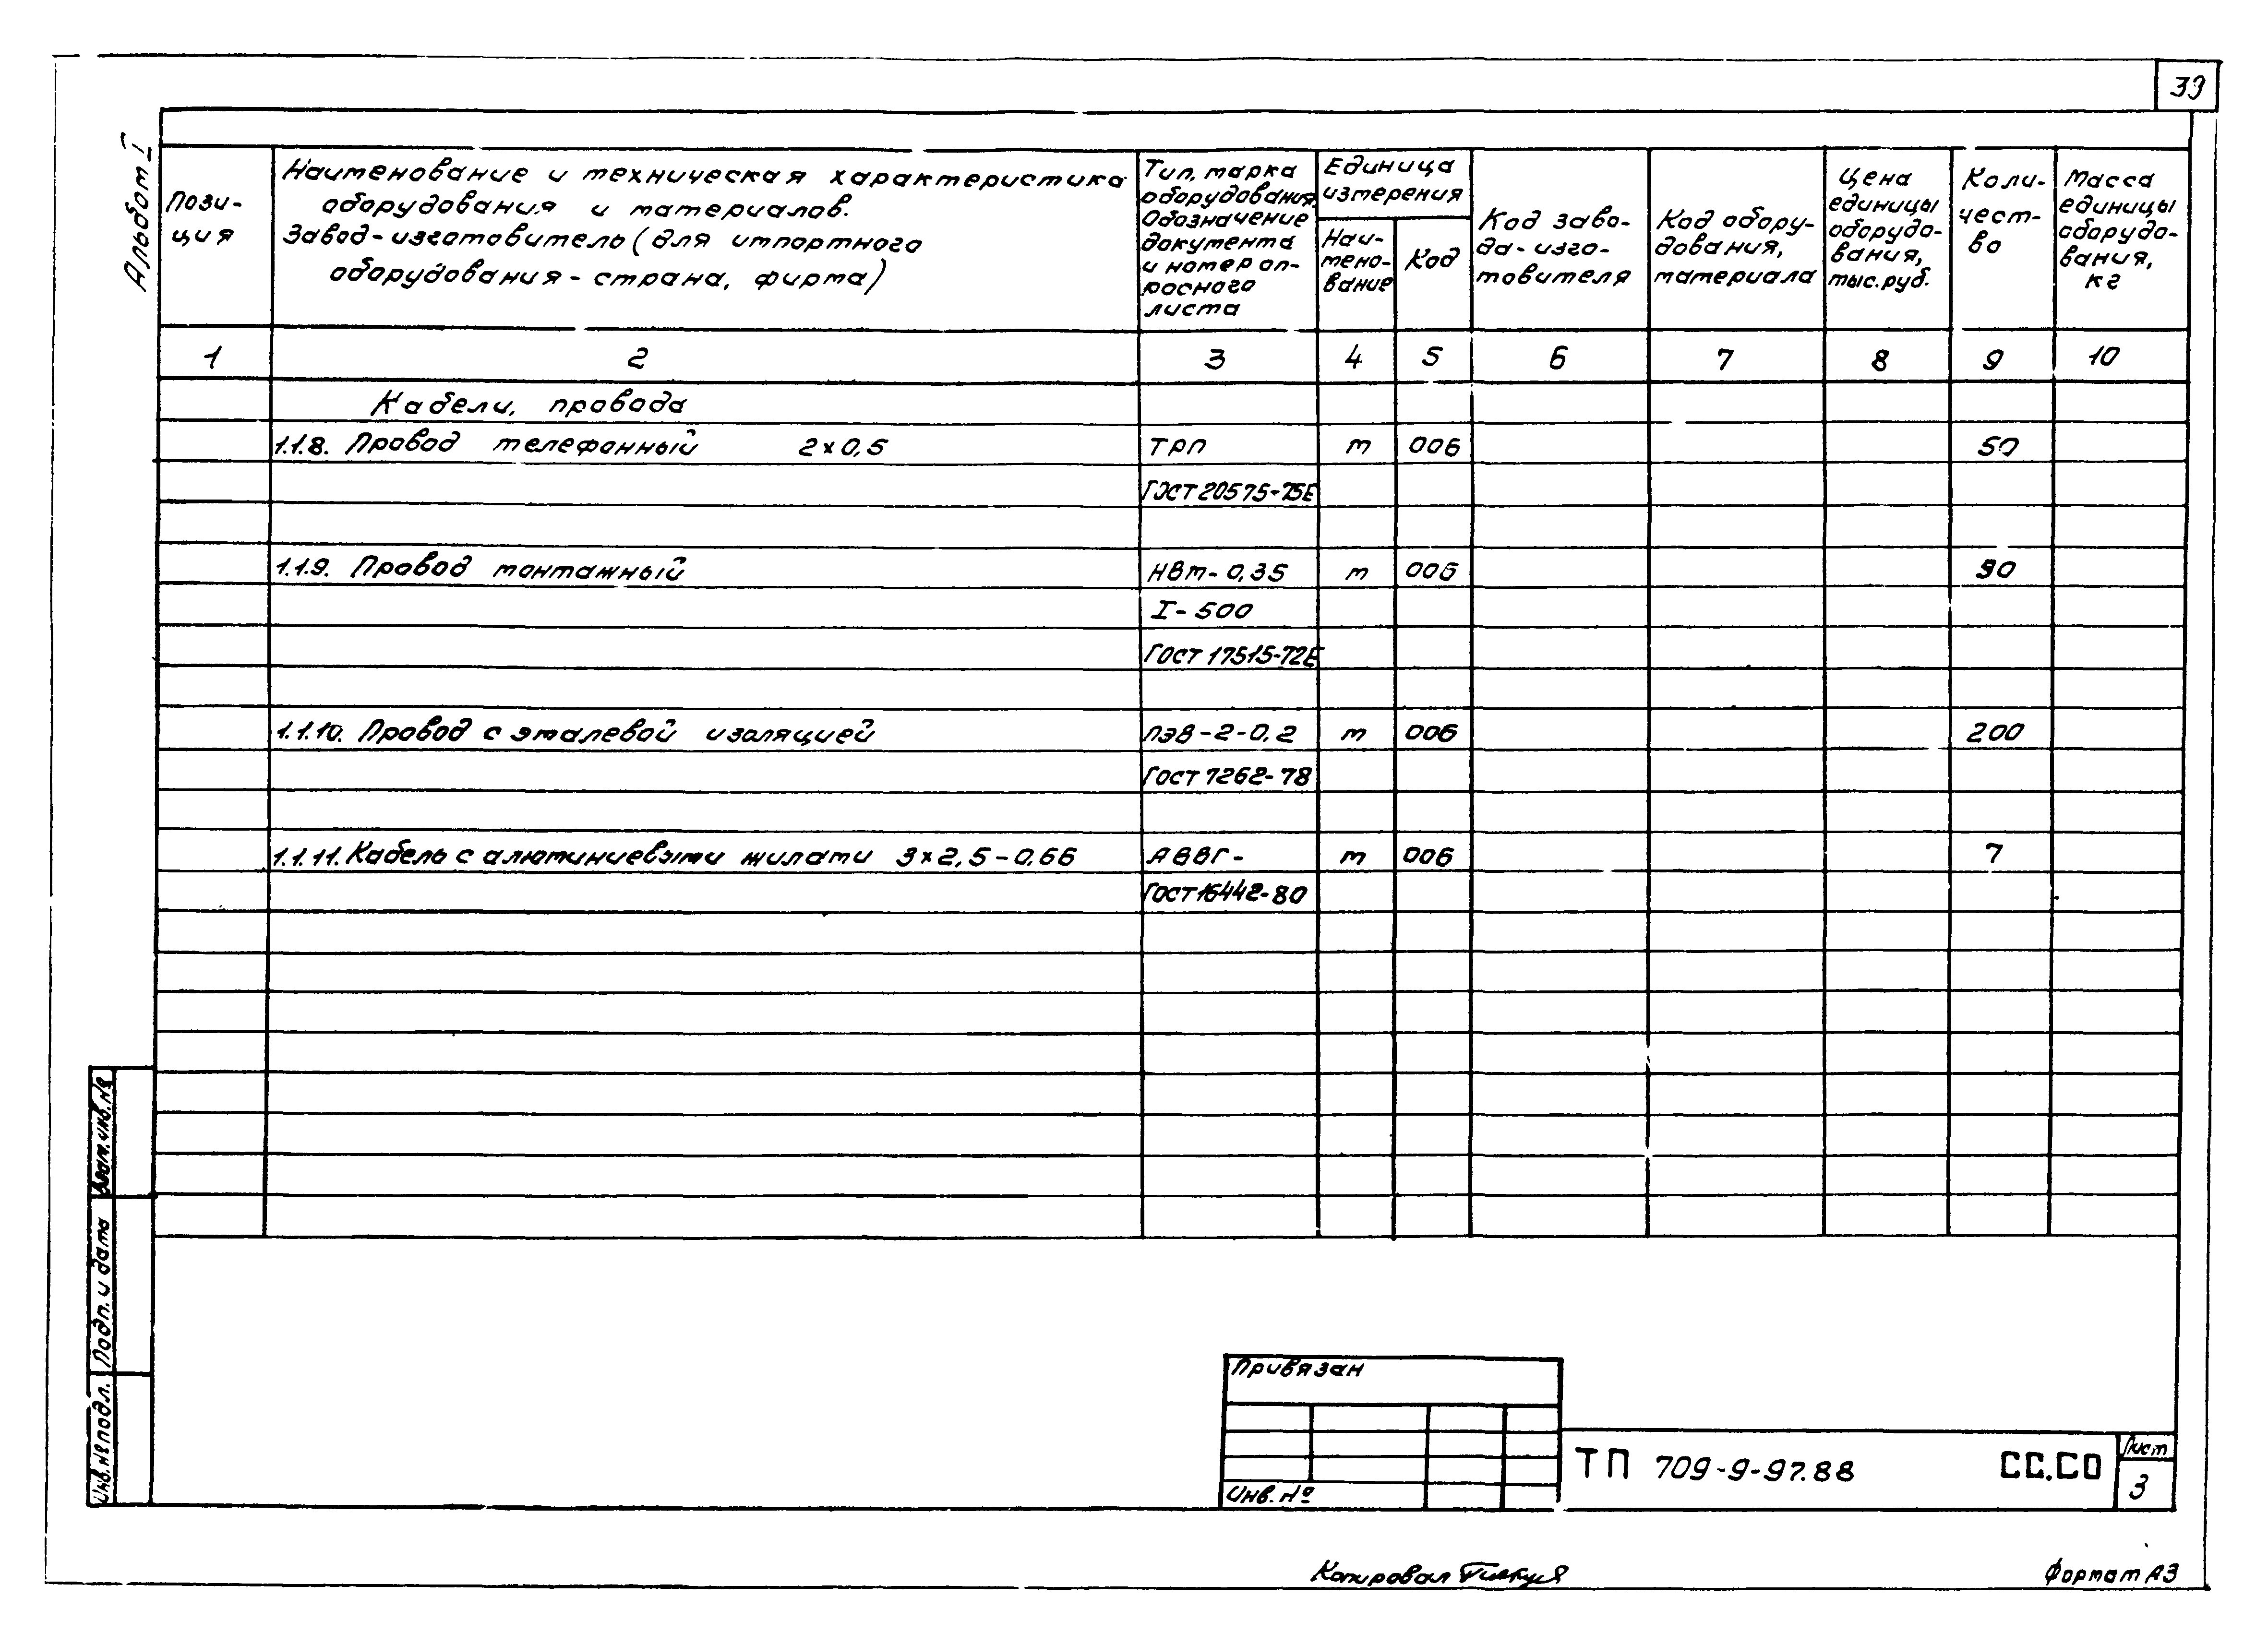 33
Альбом I
Пози-
ция
Наименование и техническая характеристика
оборудования и материалов.
Завод-изготовитель (для импортного
оборудования - страна, фирма)
Тип, марка
оборудования.
Обозначение
документа
и номер оп-
росного
листа
Единица
измерения
Наи-
мено-
вание
Код
Код заво-
да-изго-
товителя
Код обору-
дования,
материала
Цена
единицы
оборудо-
вания,
тыс.руб.
Коли-
чест-
во
Масса
единицы
оборудо-
вания,
кг
1 2 3 4 5 6 7 8 9 10
Кабели, провода
1.1.8. Провод телефанный 2×0,5 ТРП м 006 50
ГОСТ 20575-75Е
1.1.9. Провод монтажный НВм-0,35 м 006 90
I-500
ГОСТ 17515-72Е
1.1.10. Провод с эмалевой изоляцией ПЭВ-2-0,2 м 006 200
ГОСТ 7262-78
1.1.11. Кабель с алюминиевыми жилами 3×2,5-0,66 АВВГ- м 006 7
ГОСТ 16442-80
Взам.инв.№
Подп. и дата
Инв.№подл.
Привязан
Инв.№
ТП 709-9-97.88 СС.СО
Лист
3
Копировал
Формат А3